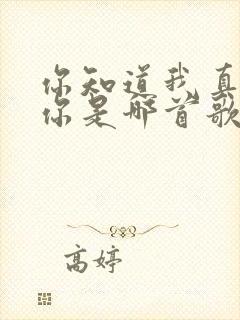 你知道我真
你是哪首歌
高婷